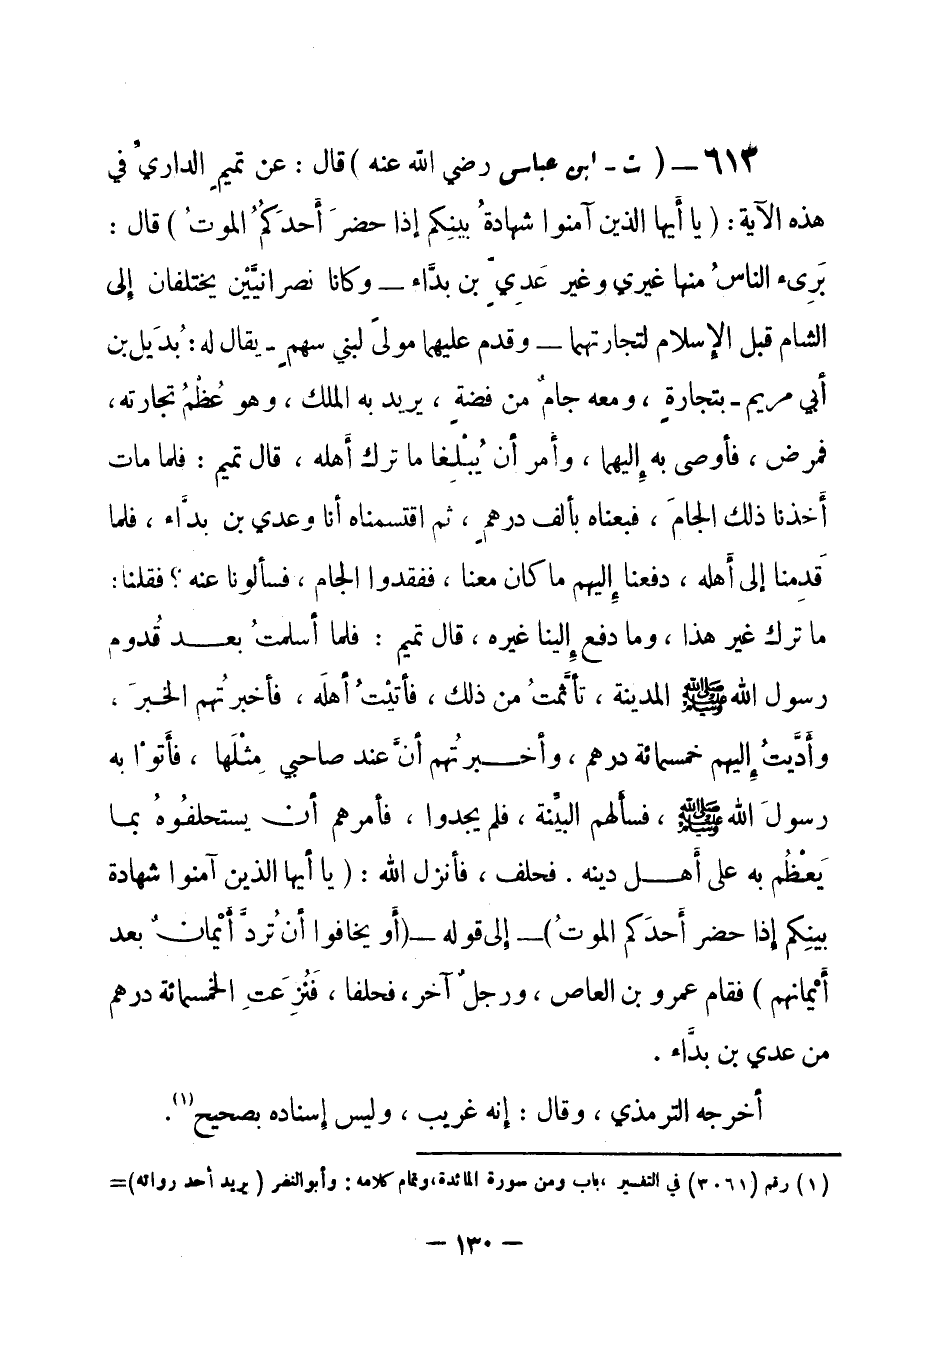 ٦١٣ – ( ت - ابن عباس رضي الله عنه ) قال : عن تميمٍ الداريُّ في
هذه الآية : ( يا أيها الذين آمنوا شهادةُ بينِكم إذا حضرَ أحدَكُمُ الموتُ ) قال :
بَرِىء الناسُ منها غيري وغير عَدِيِّ بن بدَّاء – وكانا نصرانيَّيْن يختلفان إلى
الشام قبل الإسلام لتجارتهما – وقدم عليهما مولىً لبني سهمٍ - يقال له : بُدَيل بن
أبي مريم - بتجارةٍ ، ومعه جامٌ من فضةٍ ، يريد به الملك ، وهو عُظْمُ تجارته ،
فمرض ، فأوصى به إليهما ، وأمر أن يُبْلِغا ما ترك أهله ، قال تميم : فلما مات
أخذنا ذلك الجامَ ، فبعناه بألف درهمٍ ، ثم اقتسمناه أنا وعدي بن بدَّاء ، فلما
قَدِمنا إلى أهله ، دفعنا إليهم ما كان معنا ، ففقدوا الجام ، فسألونا عنه ؟ فقلنا :
ما ترك غير هذا ، وما دفع إلينا غيره ، قال تميم : فلما أسلمتُ بعد قُدوم
رسول الله ﷺ المدينة ، تأثَّمتُ من ذلك ، فأتيْتُ أهلَه ، فأخبرتُهم الخبرَ ،
وأدَّيتُ إليهم خمسمائة درهم ، وأخبرتُهم أنَّ عند صاحبي مِثْلَها ، فأتَوْا به
رسولَ الله ﷺ ، فسألهم البيِّنة ، فلم يجدوا ، فأمرهم أن يستحلفُوهُ بما
يَعْظُم به على أهل دينه . فحلف ، فأنزل الله : ( يا أيها الذين آمنوا شهادة
بينِكم إذا حضر أحدَكم الموتُ ) – إلى قوله – ( أو يخافوا أن تُردَّ أيْمانٌ بعد
أيْمانهم ) فقام عمرو بن العاص ، ورجلٌ آخر ، فحلفا ، فَنُزِعَتِ الخمسمائة درهم
من عدي بن بدَّاء .
أخرجه الترمذي ، وقال : إنه غريب ، وليس إسناده بصحيح(١).
(١) رقم (٣٠٦١) في التفسير ، باب ومن سورة المائدة ، وتمام كلامه : وأبو النضر ( يريد أحد رواته )=
– ١٣٠ –